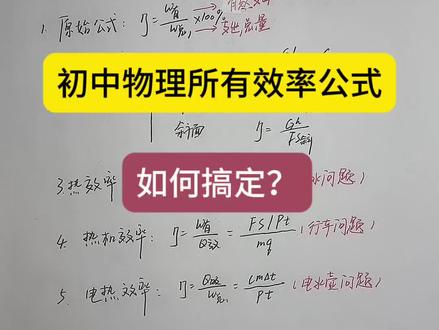 1. 原始公式: η=W有/W总 ×100%
→支出,总量
初中物理所有效率公式
斜面 η=Gh/FS
如何搞定?
3.热效率 水问题)
4. 热机效率: η=W有/Q放=FS/Pt/mq (行车问题)
5. 电热效率: η=Q吸/W总=cmΔt/Pt (电水壶问题)